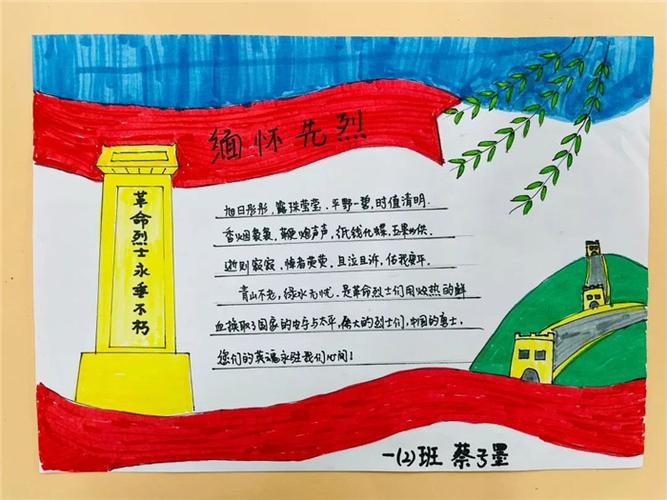 缅怀先烈
革命烈士永垂不朽
旭日彤彤，露珠莹莹，平野一碧，时值清明.
香烟袅袅，鞭炮声声，纸钱化蝶，五果份供.
逝则寂寂，悼者茕茕，且泣且诉，佑我康平.
青山不老，绿水无忧，是革命烈士们用炽热的鲜
血换取了国家的安宁与太平，伟大的烈士们，中国的勇士，
您们的英魂永驻我们心间！
一(2)班 蔡子墨